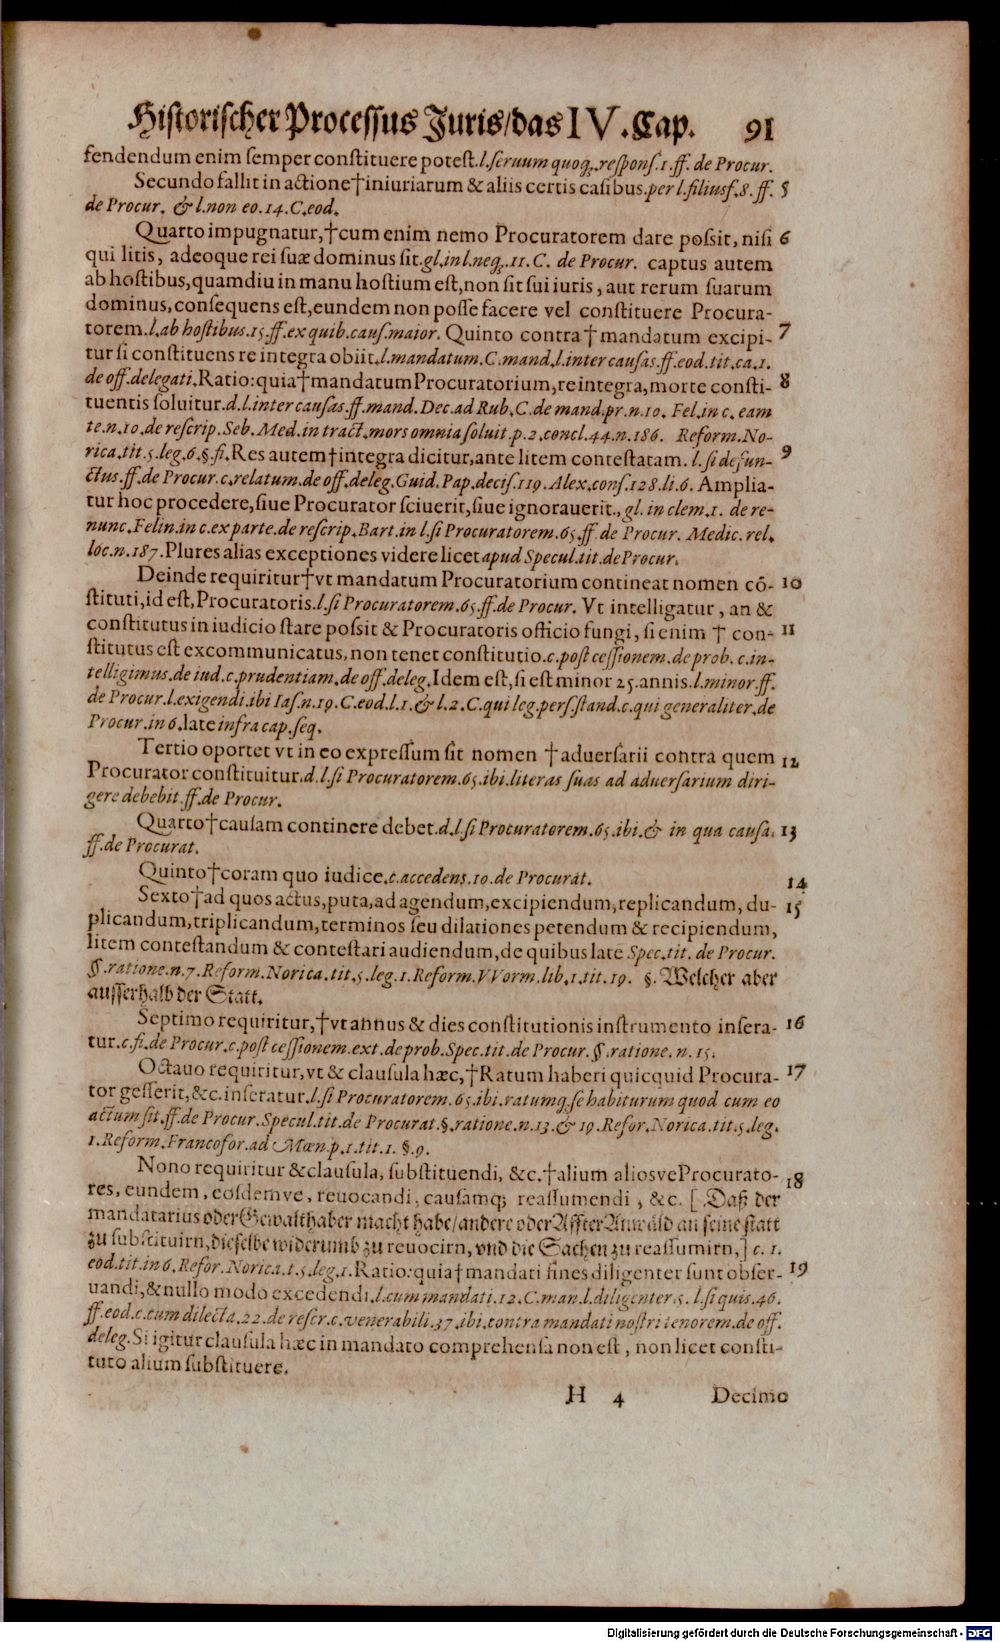 Historischer Processus Juris/das IV. Cap. 91
fendendum enim semper constituere potest. l. seruum quoq;. respons. 1. ff. de Procur.
Secundo fallit in actione † iniuriarum & aliis certis casibus. per l. filiusf. 8. ff. 5
de Procur. & l. non eo. 14. C. eod.
Quarto impugnatur, † cum enim nemo Procuratorem dare possit, nisi 6
qui litis, adeoque rei suæ dominus sit. gl. in l. neq;. 11. C. de Procur. captus autem
ab hostibus, quamdiu in manu hostium est, non sit sui iuris, aut rerum suarum
dominus, consequens est, eundem non posse facere vel constituere Procura-
torem. l. ab hostibus. 15. ff. ex quib. caus. maior. Quinto contra † mandatum excipi- 7
tur si constituens re integra obiit. l. mandatum. C. mand. l. inter causas. ff. eod. tit. ca. 1.
de off. delegati. Ratio: quia † mandatum Procuratorium, re integra, morte consti- 8
tuentis soluitur. d. l. inter causas. ff. mand. Dec. ad Rub. C. de mand. pr. n. 10. Fel. in c. eam
te. n. 10. de rescrip. Seb. Med. in tract. mors omnia soluit. p. 2. concl. 44. n. 186. Reform. No-
rica. tit. 5. leg. 6. §. fi. Res autem † integra dicitur, ante litem contestatam. l. si defun- 9
ctus. ff. de Procur. c. relatum. de off. deleg. Guid. Pap. decis. 119. Alex. cons. 128. li. 6. Amplia-
tur hoc procedere, siue Procurator sciuerit, siue ignorauerit., gl. in clem. 1. de re-
nunc. Felin. in c. ex parte. de rescrip. Bart. in l. si Procuratorem. 65. ff. de Procur. Medic. rel.
loc. n. 187. Plures alias exceptiones videre licet apud Specul. tit. de Procur.
Deinde requiritur † vt mandatum Procuratorium contineat nomen cō- 10
stituti, id est, Procuratoris. l. si Procuratorem. 65. ff. de Procur. Vt intelligatur, an &
constitutus in iudicio stare possit & Procuratoris officio fungi, si enim † con- 11
stitutus est excommunicatus, non tenet constitutio. c. post cessionem. de prob. c. in-
telligimus. de iud. c. prudentiam. de off. deleg. Idem est, si est minor 25. annis. l. minor. ff.
de Procur. l. exigendi. ibi Ias. n. 19. C. eod. l. 1. & l. 2. C. qui leg. pers. stand. c. qui generaliter. de
Procur. in 6. late infra cap. seq.
Tertio oportet vt in eo expressum sit nomen † aduersarii contra quem 12
Procurator constituitur. d. l. si Procuratorem. 65. ibi. literas suas ad aduersarium diri-
gere debebit. ff. de Procur.
Quarto † causam continere debet. d. l. si Procuratorem. 65. ibi. & in qua causa. 13
ff. de Procurat.
Quinto † coram quo iudice. c. accedens. 10. de Procurat. 14
Sexto † ad quos actus, puta, ad agendum, excipiendum, replicandum, du- 15
plicandum, triplicandum, terminos seu dilationes petendum & recipiendum,
litem contestandum & contestari audiendum, de quibus late Spec. tit. de Procur.
§. ratione. n. 7. Reform. Norica. tit. 5. leg. 1. Reform. VVorm. lib. 1. tit. 19. §. Welcher aber
ausserhalb der Statt.
Septimo requiritur, † vt annus & dies constitutionis instrumento insera- 16
tur. c. fi. de Procur. c. post cessionem. ext. de prob. Spec. tit. de Procur. §. ratione. n. 15.
Octauo requiritur, vt & clausula hæc, † Ratum haberi quicquid Procura- 17
tor gesserit, &c. inseratur. l. si Procuratorem. 65. ibi. ratumq; se habiturum quod cum eo
actum sit. ff. de Procur. Specul. tit. de Procurat. §. ratione. n. 13. & 19. Refor. Norica. tit. 5. leg.
1. Reform. Francofor. ad Mœn. p. 1. tit. 1. §. 9.
Nono requiritur & clausula, substituendi, &c. † alium aliosve Procurato- 18
res, eundem, eosdemve, reuocandi, causamq; reassumendi, &c. [ Daß der
mandatarius oder Gewalthaber macht habe/ andere oder Affter Anwäld an seine statt
zu substituirn, dieselbe widerumb zu reuocirn, vnd die Sachen zu reassumirn, ] c. 1.
eod. tit. in 6. Refor. Norica. t. 5. leg. 1. Ratio: quia † mandati fines diligenter sunt obser- 19
uandi, & nullo modo excedendi. l. cum mandati. 12. C. man. l. diligenter. 5. l. si quis. 46.
ff. eod. c. cum dilecta. 22. de rescr. c. venerabili. 37. ibi. contra mandati nostri tenorem. de off.
deleg. Si igitur clausula hæc in mandato comprehensa non est, non licet consti-
tuto alium substituere.
H 4 Decimo
Digitalisierung gefördert durch die Deutsche Forschungsgemeinschaft - DFG